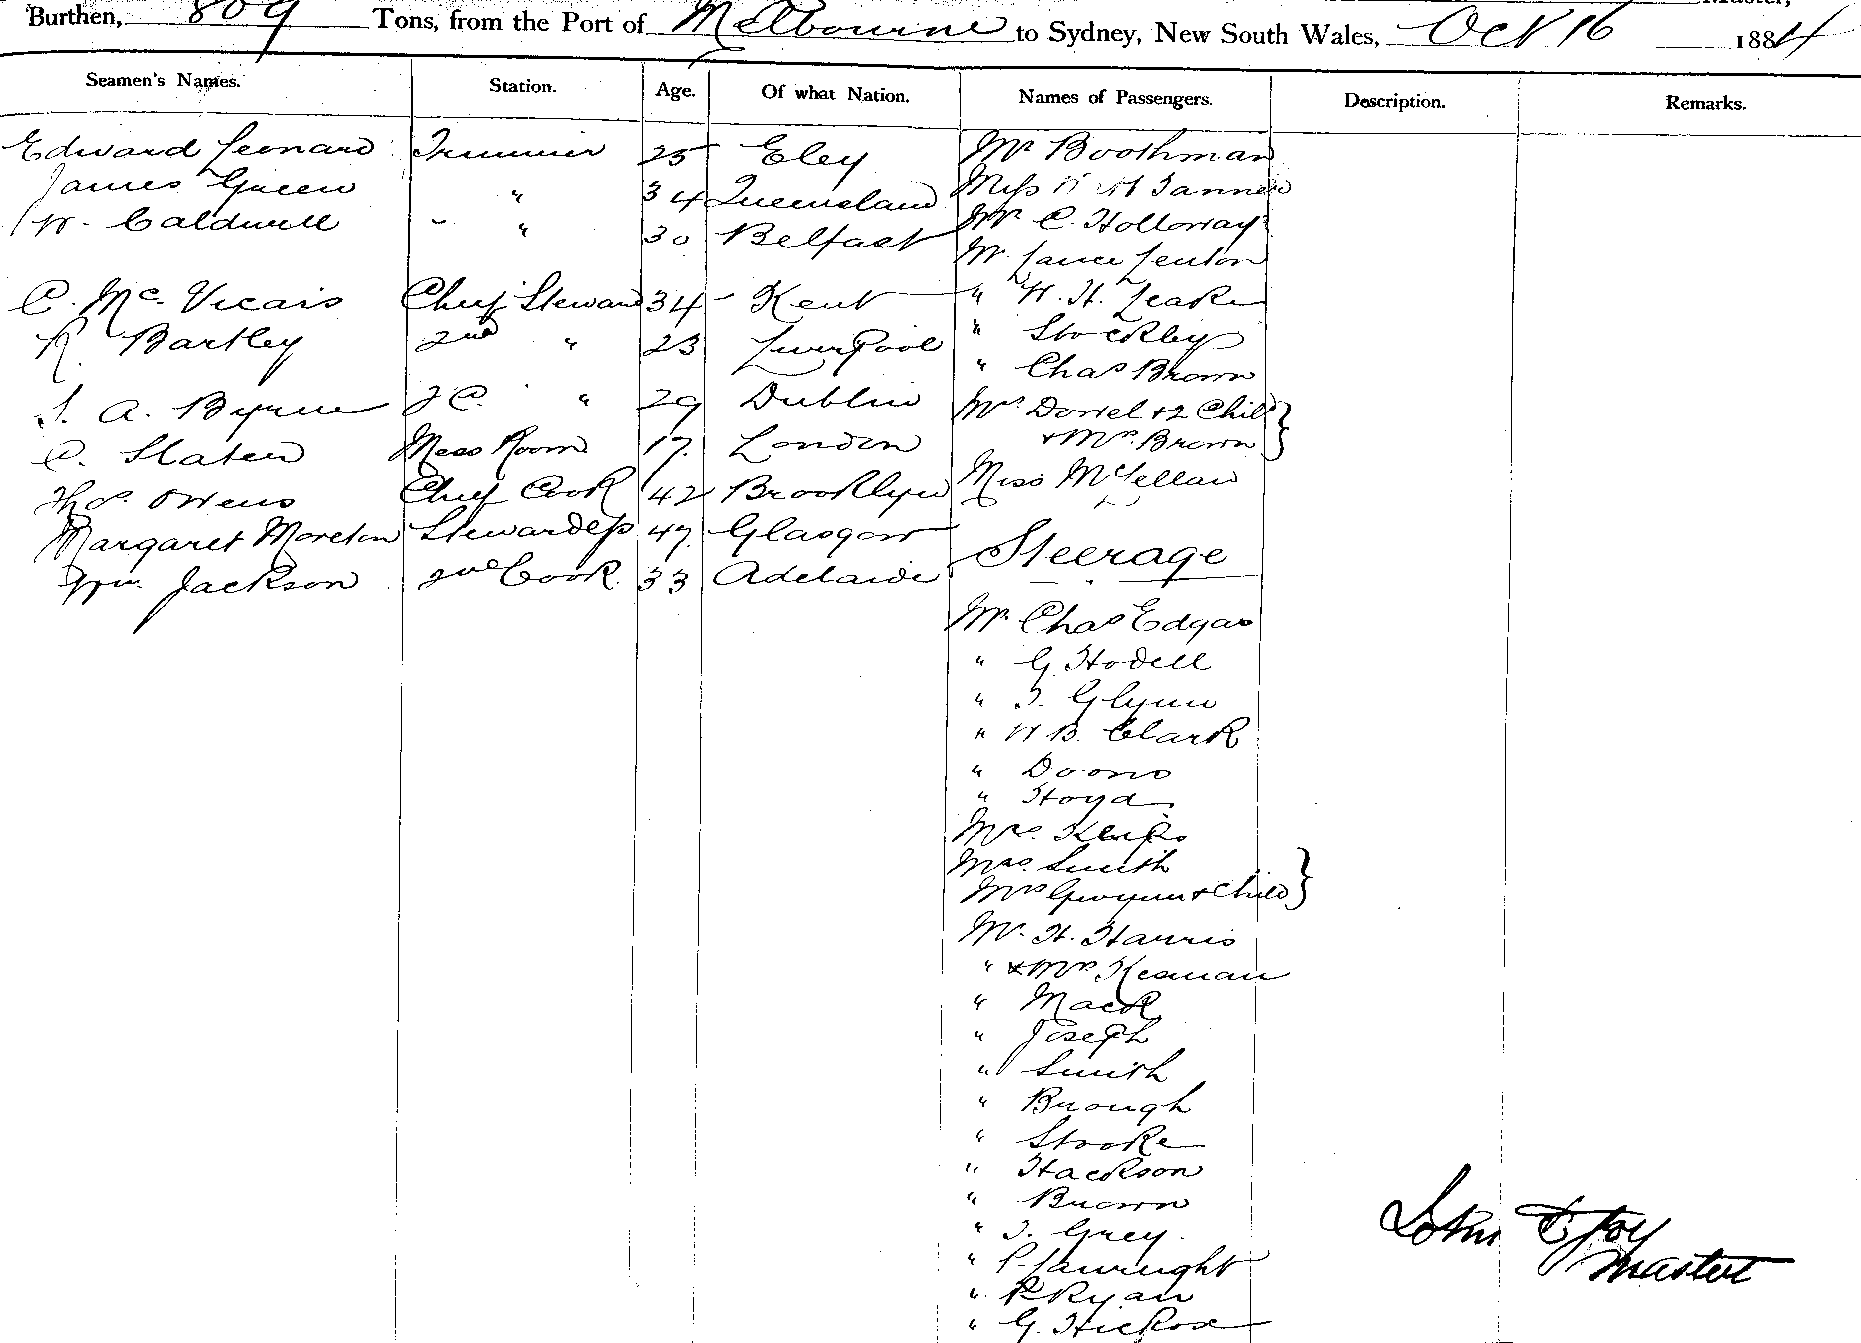 Burthen, 809 Tons, from the Port of Melbourne to Sydney, New South Wales, Oct 16 1884
Seamen's Names. Station. Age. Of what Nation. Names of Passengers. Description. Remarks.
Edward Leonard Trimmer 25 Eley Mr Boothman
James Green " 34 Queensland Miss Tanner
W. Caldwell " " 30 Belfast Mr C. Holloway
Mr. Lance Lenton
C. Mc. Vicars Chief Steward 34 Kent " W. H. Leake
R. Bartley 2nd " 23 Liverpool " Stockley
" Chas Brown
J. A. Byrne " 29 Dublin Mrs + 2 Child
+ Mrs. Brown
C. Slater Mess Room 17. London
Miss McLellan
Thos. Owens Chief Cook 42 Brooklyn
Margaret Moreton Stewardess 47. Glasgow
Steerage
Wm. Jackson 2nd Cook 33 Adelaide
Mr. Chas Edgar
" G. Hodell
" J. Glynn
" W B. Clark
"
"
Mrs.
Mrs. Smith
Mrs Gwynn + Child
Mr. H. Harris
" + Mrs Keenan
" Mack
" Joseph
" Smith
" Brough
" Stooke
" Hackson
" Brown
" J. Grey.
"
" P Ryan
" G. Hickox
John Joy
Master